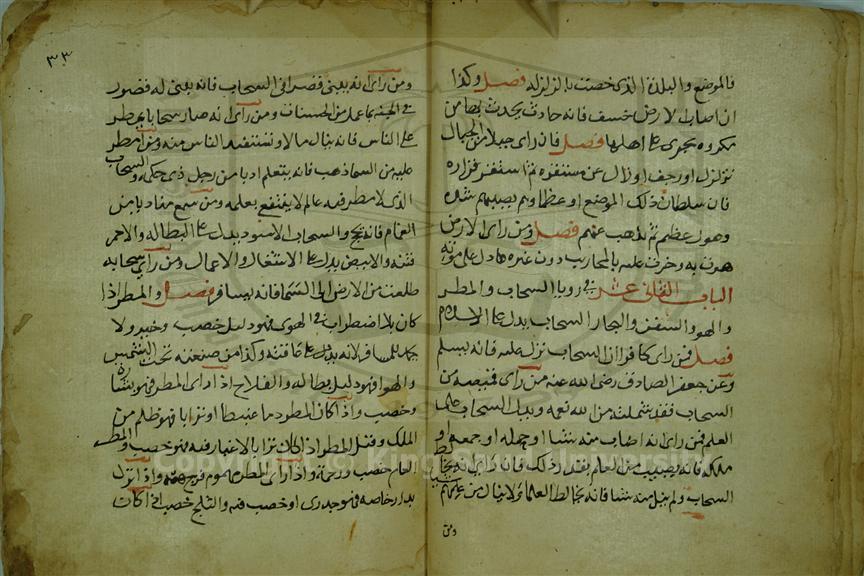 فالموضع والبلدة الذى خصت بالزلزله فصل وكذا
ان اصاب الارض خسف فانه حادث يحدث بها من
مكروه يجرى على اهلها فصل فان راى جبلا من الجبال
تزلزل او رجف او زال عن مستقره ثم استقر قراره
فان سلطان ذلك الموضع او عظماوهم يصيبهم شده
وهول عظيم ثم تذهب عنهم فصل ومن راى الارض
هوت به وخرت عليه بالمحاريب دون غيره هادل على موته
الباب الثانى عشر فى رويا السحاب والمطر
والهوا والسفن والبحار السحاب يدل على الاسلام
فصل فمن راى كافرا ان السحاب نزل عليه فانه يسلم
وعن جعفر الصادق رضى الله عنه من راى قميصه من
السحاب فقد شملته من الله نعمه ويدل السحاب على
العلم فمن راى انه اصاب منه شيا او حمله او جمعه او
ملكه فانه يصيب من العلم بقدر ذلك فان راى انه يخالط
السحاب ولم ينل منه شيا فانه يخالط العلماء ولا ينال من علمهم شيا
ومن
٣٣
ومن راى انه يبنى قصرا فى السحاب فانه يبنى له قصور
فى الجنه بما عمل من الحسنات ومن راى انه صار سحابا يمطر
على الناس فانه ينال مالا وتستفيد الناس منه ومن امطر
عليه من السما ذهب فانه يتعلم ادبا من رجل ذى حكمه والسحاب
الذى لا مطر فيه عالم لا ينتفع بعلمه ومن سمع مناديا من
الغمام فانه يحج والسحاب الاسود يدل على البطاله والاحمر
فتنه والابيض يدل على الاشتغال والاعمال ومن راى سحابه
طلعت من الارض الى السما فانه يسافر فصل والمطر اذا
كان بلا اضطراب فى الهوى فهود ليل خصب وخير ولا
للمسافر لانه يدل على عاقته وكذا من صنعته تحت الشمس
والهوا فهود ليل بطاله والفلاح اذا راى المطر فهو بشاره
وخصب واذا كان المطر دما عبيطا او ترابا فهو ظلم من
الملك وقيل المطر اذا كان ترابا لا غبار فيه فهو خصب والمطر
العام خصب ورحمة واذا راى المطر مهموم فرج همه واذا نزل
بدار خاصه فهو جدرى او خصب فيه والثلج خصب اذا كان
Copyright © King Saud University